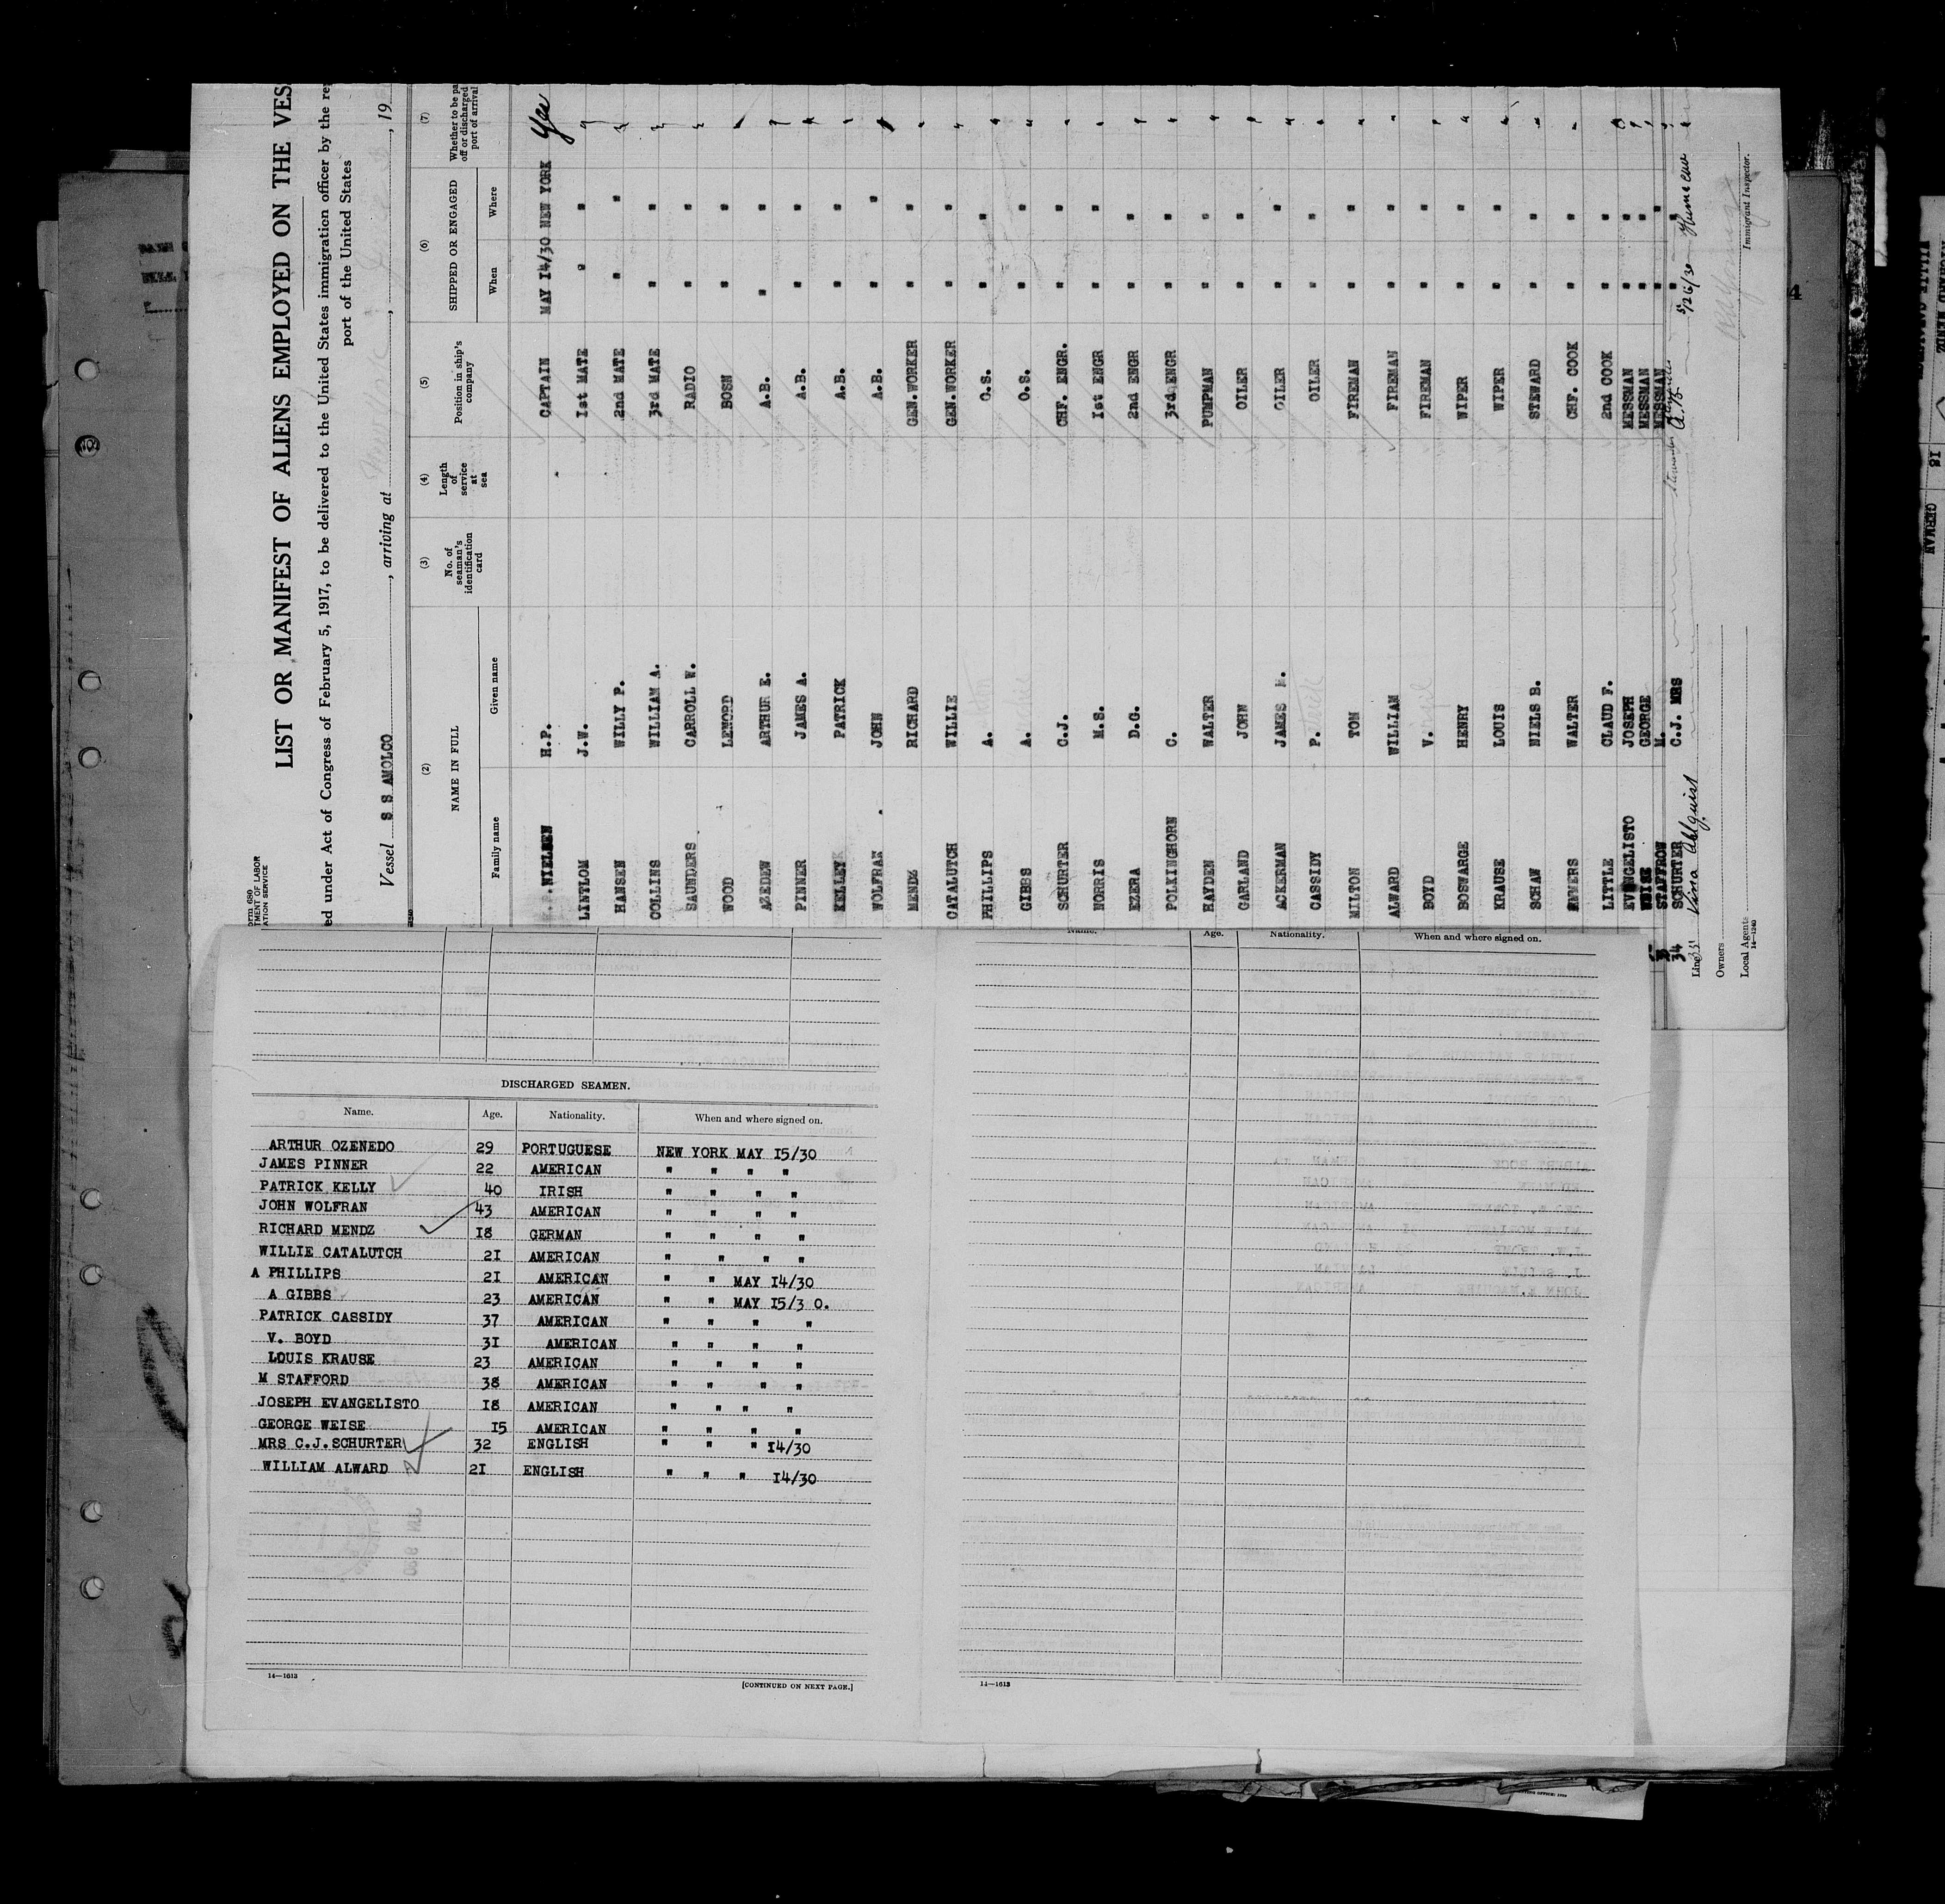 Form 680
DEPARTMENT OF LABOR
IMMIGRATION SERVICE
LIST OR MANIFEST OF ALIENS EMPLOYED ON THE VES
ed under Act of Congress of February 5, 1917, to be delivered to the United States immigration officer by the re
port of the United States
Vessel S S AMOLCO, arriving at , 19
(2) (3) (4) (5) (6) (7)
NAME IN FULL No. of seaman's identification card Length of service at sea Position in ship's company SHIPPED OR ENGAGED Whether to be pa off or discharged port of arrival
Family name Given name When Where
NIELSEN H.P. CAPTAIN MAY 14/30 NEW YORK Yes
LINTLOM J.W. 1st MATE " "
HANSEN WILLY P. 2nd MATE " "
COLLINS WILLIAM A. 3rd MATE " "
SAUNDERS CARROLL W. RADIO " "
WOOD LENORD BOSN " "
AZEDEW ARTHUR E. A.B. " "
PINNER JAMES A. A.B. " "
KELLEY PATRICK A.B. " "
WOLFRAK JOHN A.B. " "
MENDZ RICHARD GEN.WORKER " "
CATALUTCH WILLIE GEN.WORKER " "
PHILLIPS A. O.S. " "
GIBBS A. O.S. " "
SCHURTER C.J. CHF. ENGR. " "
NORRIS M.S. 1st ENGR " "
EZERA D.G. 2nd ENGR " "
POLKINGHORN C. 3rd ENGR " "
HAYDEN WALTER PUMPMAN " "
GARLAND JOHN OILER " "
ACKERMAN JAMES M. OILER " "
CASSIDY P. OILER " "
MILTON TOM FIREMAN " "
ALWARD WILLIAM FIREMAN " "
BOYD V. FIREMAN " "
BOSWARGE HENRY WIPER " "
KRAUSE LOUIS WIPER " "
SCHAW NIELS B. STEWARD " "
WALTER CHF. COOK " "
LITTLE CLAUD F. 2nd COOK " "
EVENGELISTO JOSEPH MESSMAN " "
GEORGE MESSMAN " "
STAFFROW M. MESSMAN " "
34 SCHURTER C.J. MRS "
Line 5/26/30
Owners
Local Agents
14—1240
Immigrant Inspector.
DISCHARGED SEAMEN.
Name. Age. Nationality. When and where signed on.
ARTHUR OZENEDO 29 PORTUGUESE NEW YORK MAY 15/30
JAMES PINNER 22 AMERICAN " " " "
PATRICK KELLY 40 IRISH " " " "
JOHN WOLFRAN 43 AMERICAN " " " "
RICHARD MENDZ 18 GERMAN " " " "
WILLIE CATALUTCH 21 AMERICAN " " " "
A PHILLIPS 21 AMERICAN " " MAY 14/30
A GIBBS 23 AMERICAN " " MAY 15/3 0.
PATRICK CASSIDY 37 AMERICAN " " " "
V. BOYD 31 AMERICAN " " " "
LOUIS KRAUSE 23 AMERICAN " " " "
M STAFFORD 38 AMERICAN " " " "
JOSEPH EVANGELISTO 18 AMERICAN " " " "
GEORGE WEISE 15 AMERICAN " " " "
MRS C.J.SCHURTER 32 ENGLISH " " " 14/30
WILLIAM ALWARD 21 ENGLISH " " " 14/30
14—1613
[CONTINUED ON NEXT PAGE.]
Name. Age. Nationality. When and where signed on.
14—1613